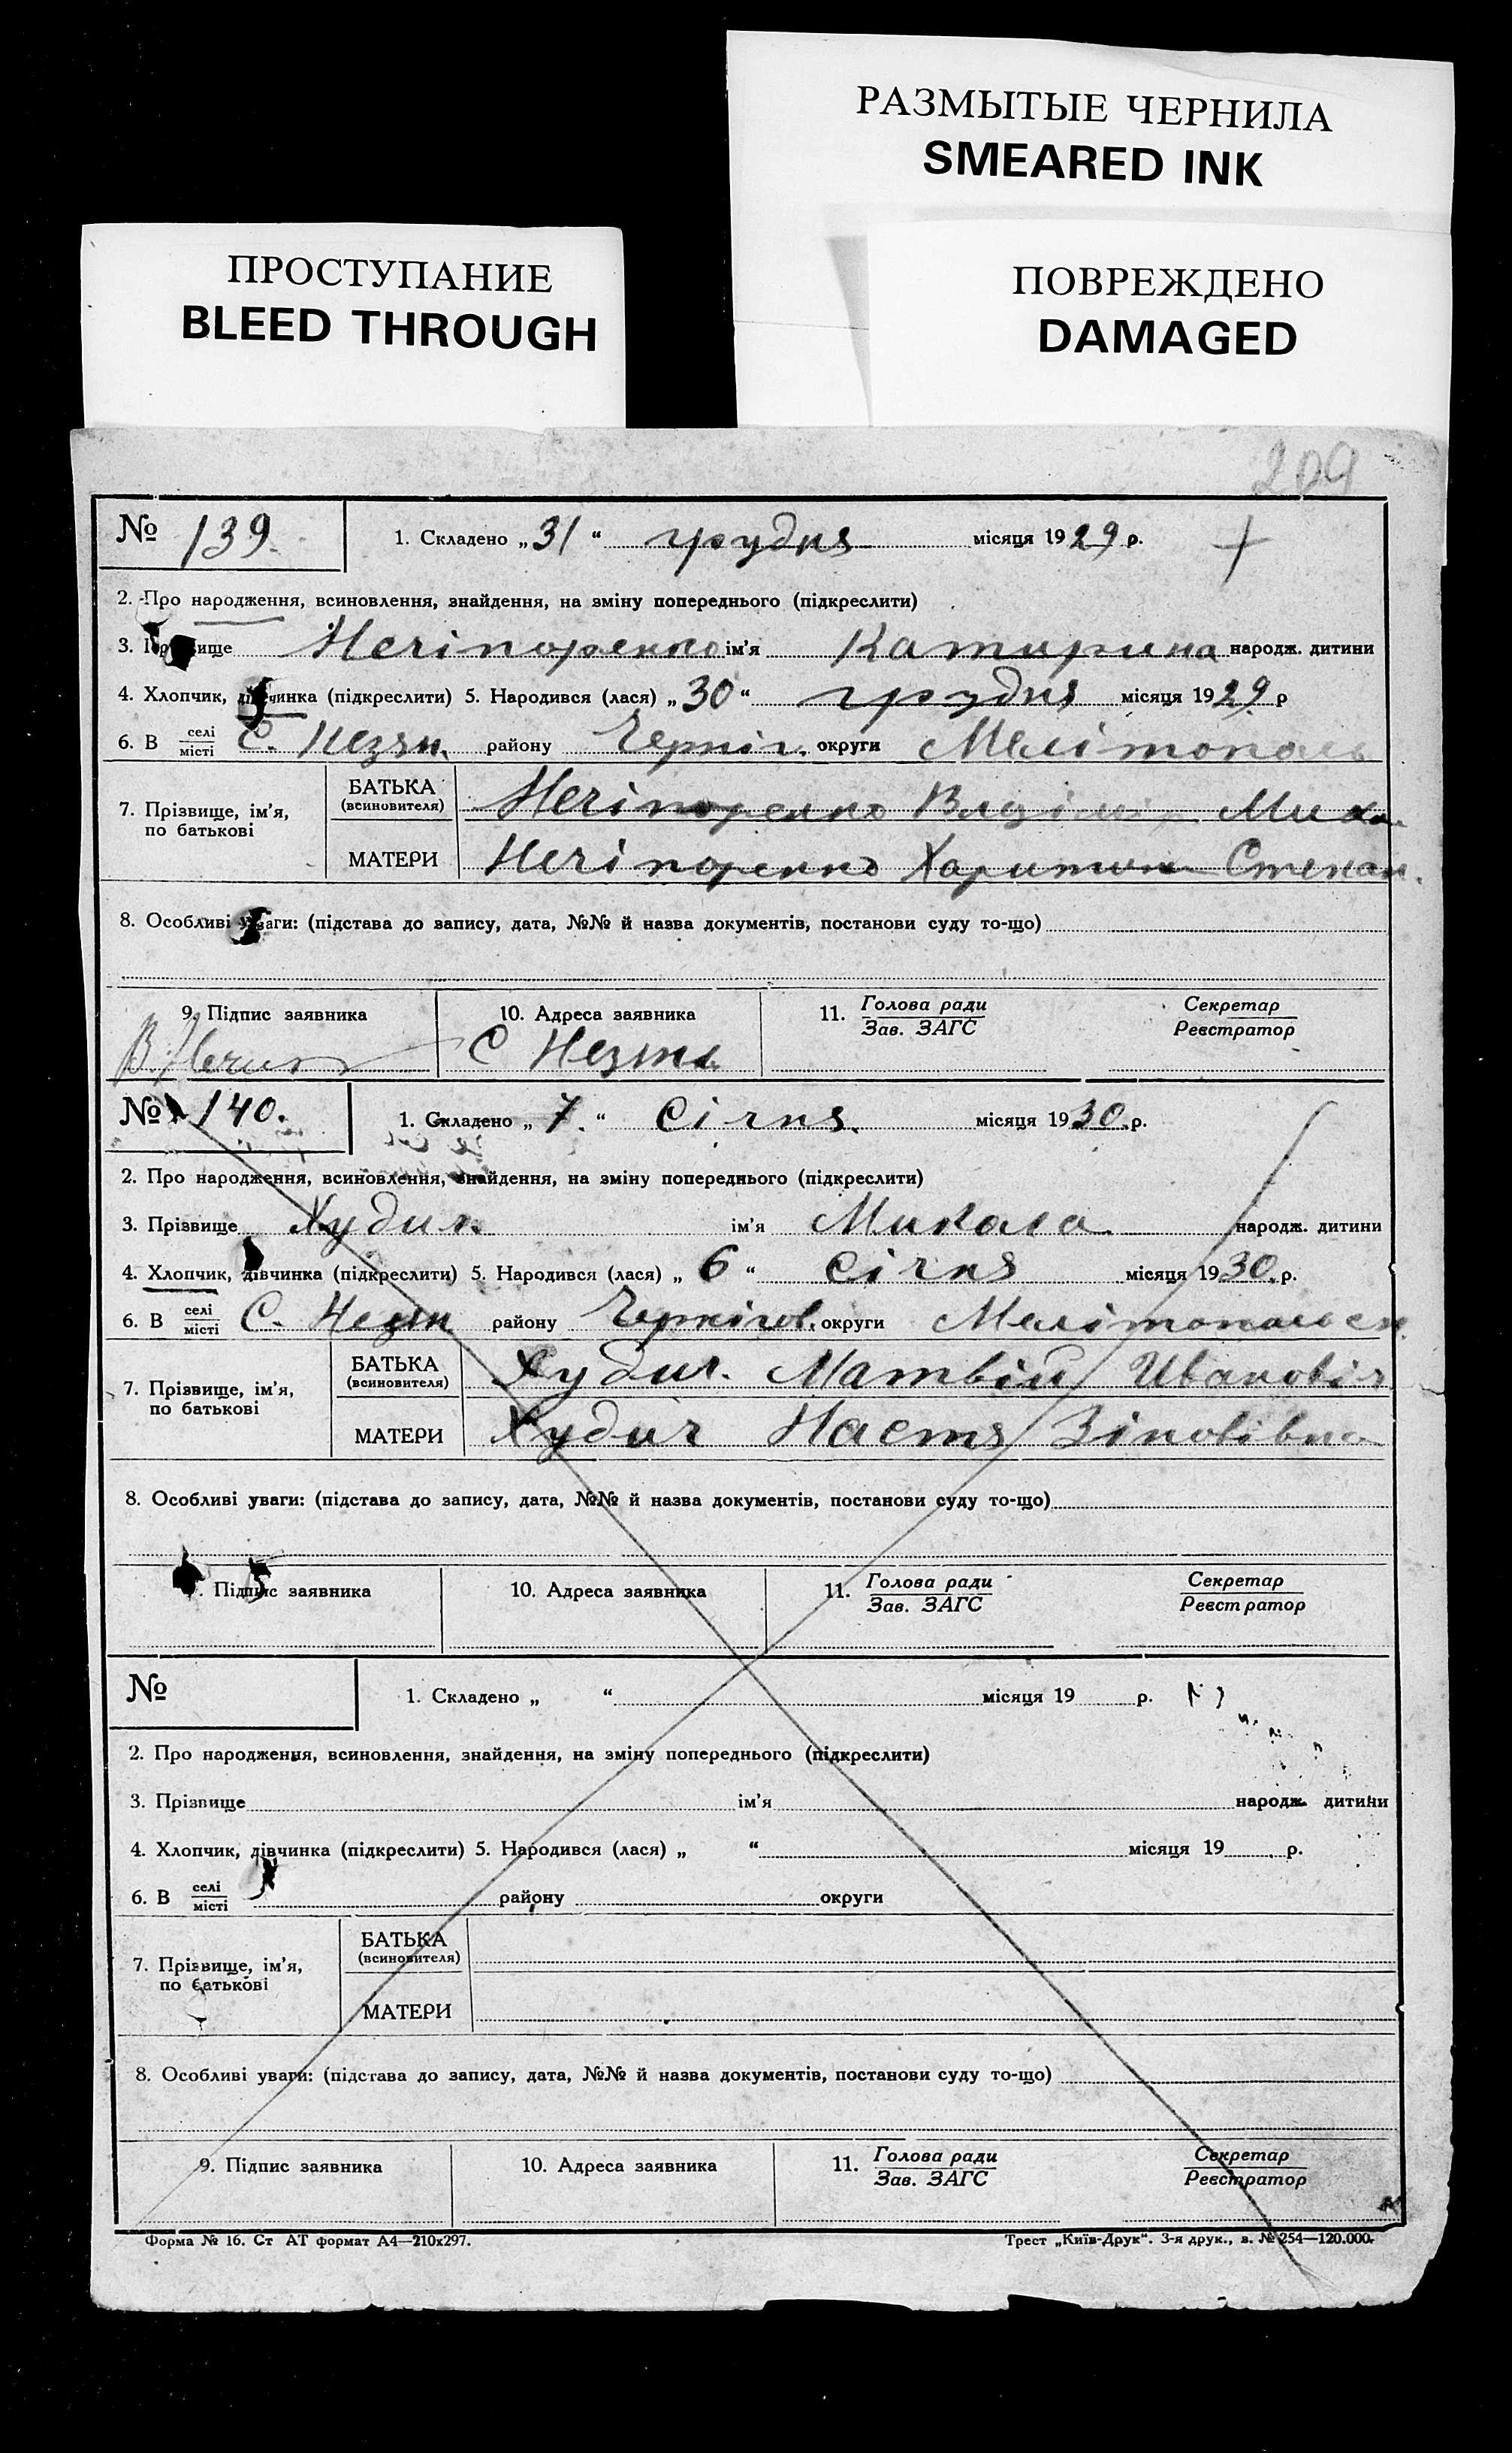 РАЗМЫТЫЕ ЧЕРНИЛА
SMEARED INK
ПРОСТУПАНИЕ
BLEED THROUGH
ПОВРЕЖДЕНО
DAMAGED
209
№ 139. 1. Складено „31“ грудня місяця 1929 р.
2. Про народження, всиновлення, знайдення, на зміну попереднього (підкреслити)
3. Прізвище Нечіпоренко ім'я Катирина народж. дитини
4. Хлопчик, дівчинка (підкреслити) 5. Народився (лася) „30“ грудня місяця 1929 р
6. В селі/місті С. район Черніг. округи Мелітополь
7. Прізвище, ім'я, по батькові
БАТЬКА (всиновителя) Нечіпоренко
МАТЕРИ Нечіпоренко Харитин Степан.
8. Особливі уваги: (підстава до запису, дата, №№ й назва документів, постанови суду то-що)
9. Підпис заявника 10. Адреса заявника 11. Голова ради/Зав. ЗАГС Секретар/Реєстратор
С
№ 140. 1. Складено „7.“ Січня. місяця 1930.р.
2. Про народження, всиновлення, знайдення, на зміну попереднього (підкреслити)
3. Прізвище Худич ім'я Микола народж. дитини
4. Хлопчик, дівчинка (підкреслити) 5. Народився (лася) „6“ Січня місяця 1930.р.
6. В селі/місті С. району Чернігов. округи Мелітопольск
7. Прізвище, ім'я, по батькові
БАТЬКА (всиновителя) Худич. Матвій Иванович
МАТЕРИ Худич Настя Зіновівна
8. Особливі уваги: (підстава до запису, дата, №№ й назва документів, постанови суду то-що)
Підпис заявника 10. Адреса заявника 11. Голова ради/Зав. ЗАГС Секретар/Реєстратор
№ 1. Складено „ “ місяця 19 р.
2. Про народження, всиновлення, знайдення, на зміну попереднього (підкреслити)
3. Прізвище ім'я народж. дитини
4. Хлопчик, дівчинка (підкреслити) 5. Народився (лася) „ “ місяця 19 р.
6. В селі/місті району округи
7. Прізвище, ім'я, по батькові
БАТЬКА (всиновителя)
МАТЕРИ
8. Особливі уваги: (підстава до запису, дата, №№ й назва документів, постанови суду то-що)
9. Підпис заявника 10. Адреса заявника 11. Голова ради/Зав. ЗАГС Секретар/Реєстратор
Форма № 16. Ст АТ формат А4—210х297. Трест „Київ-Друк“. 3-я друк., з. № 254—120.000.